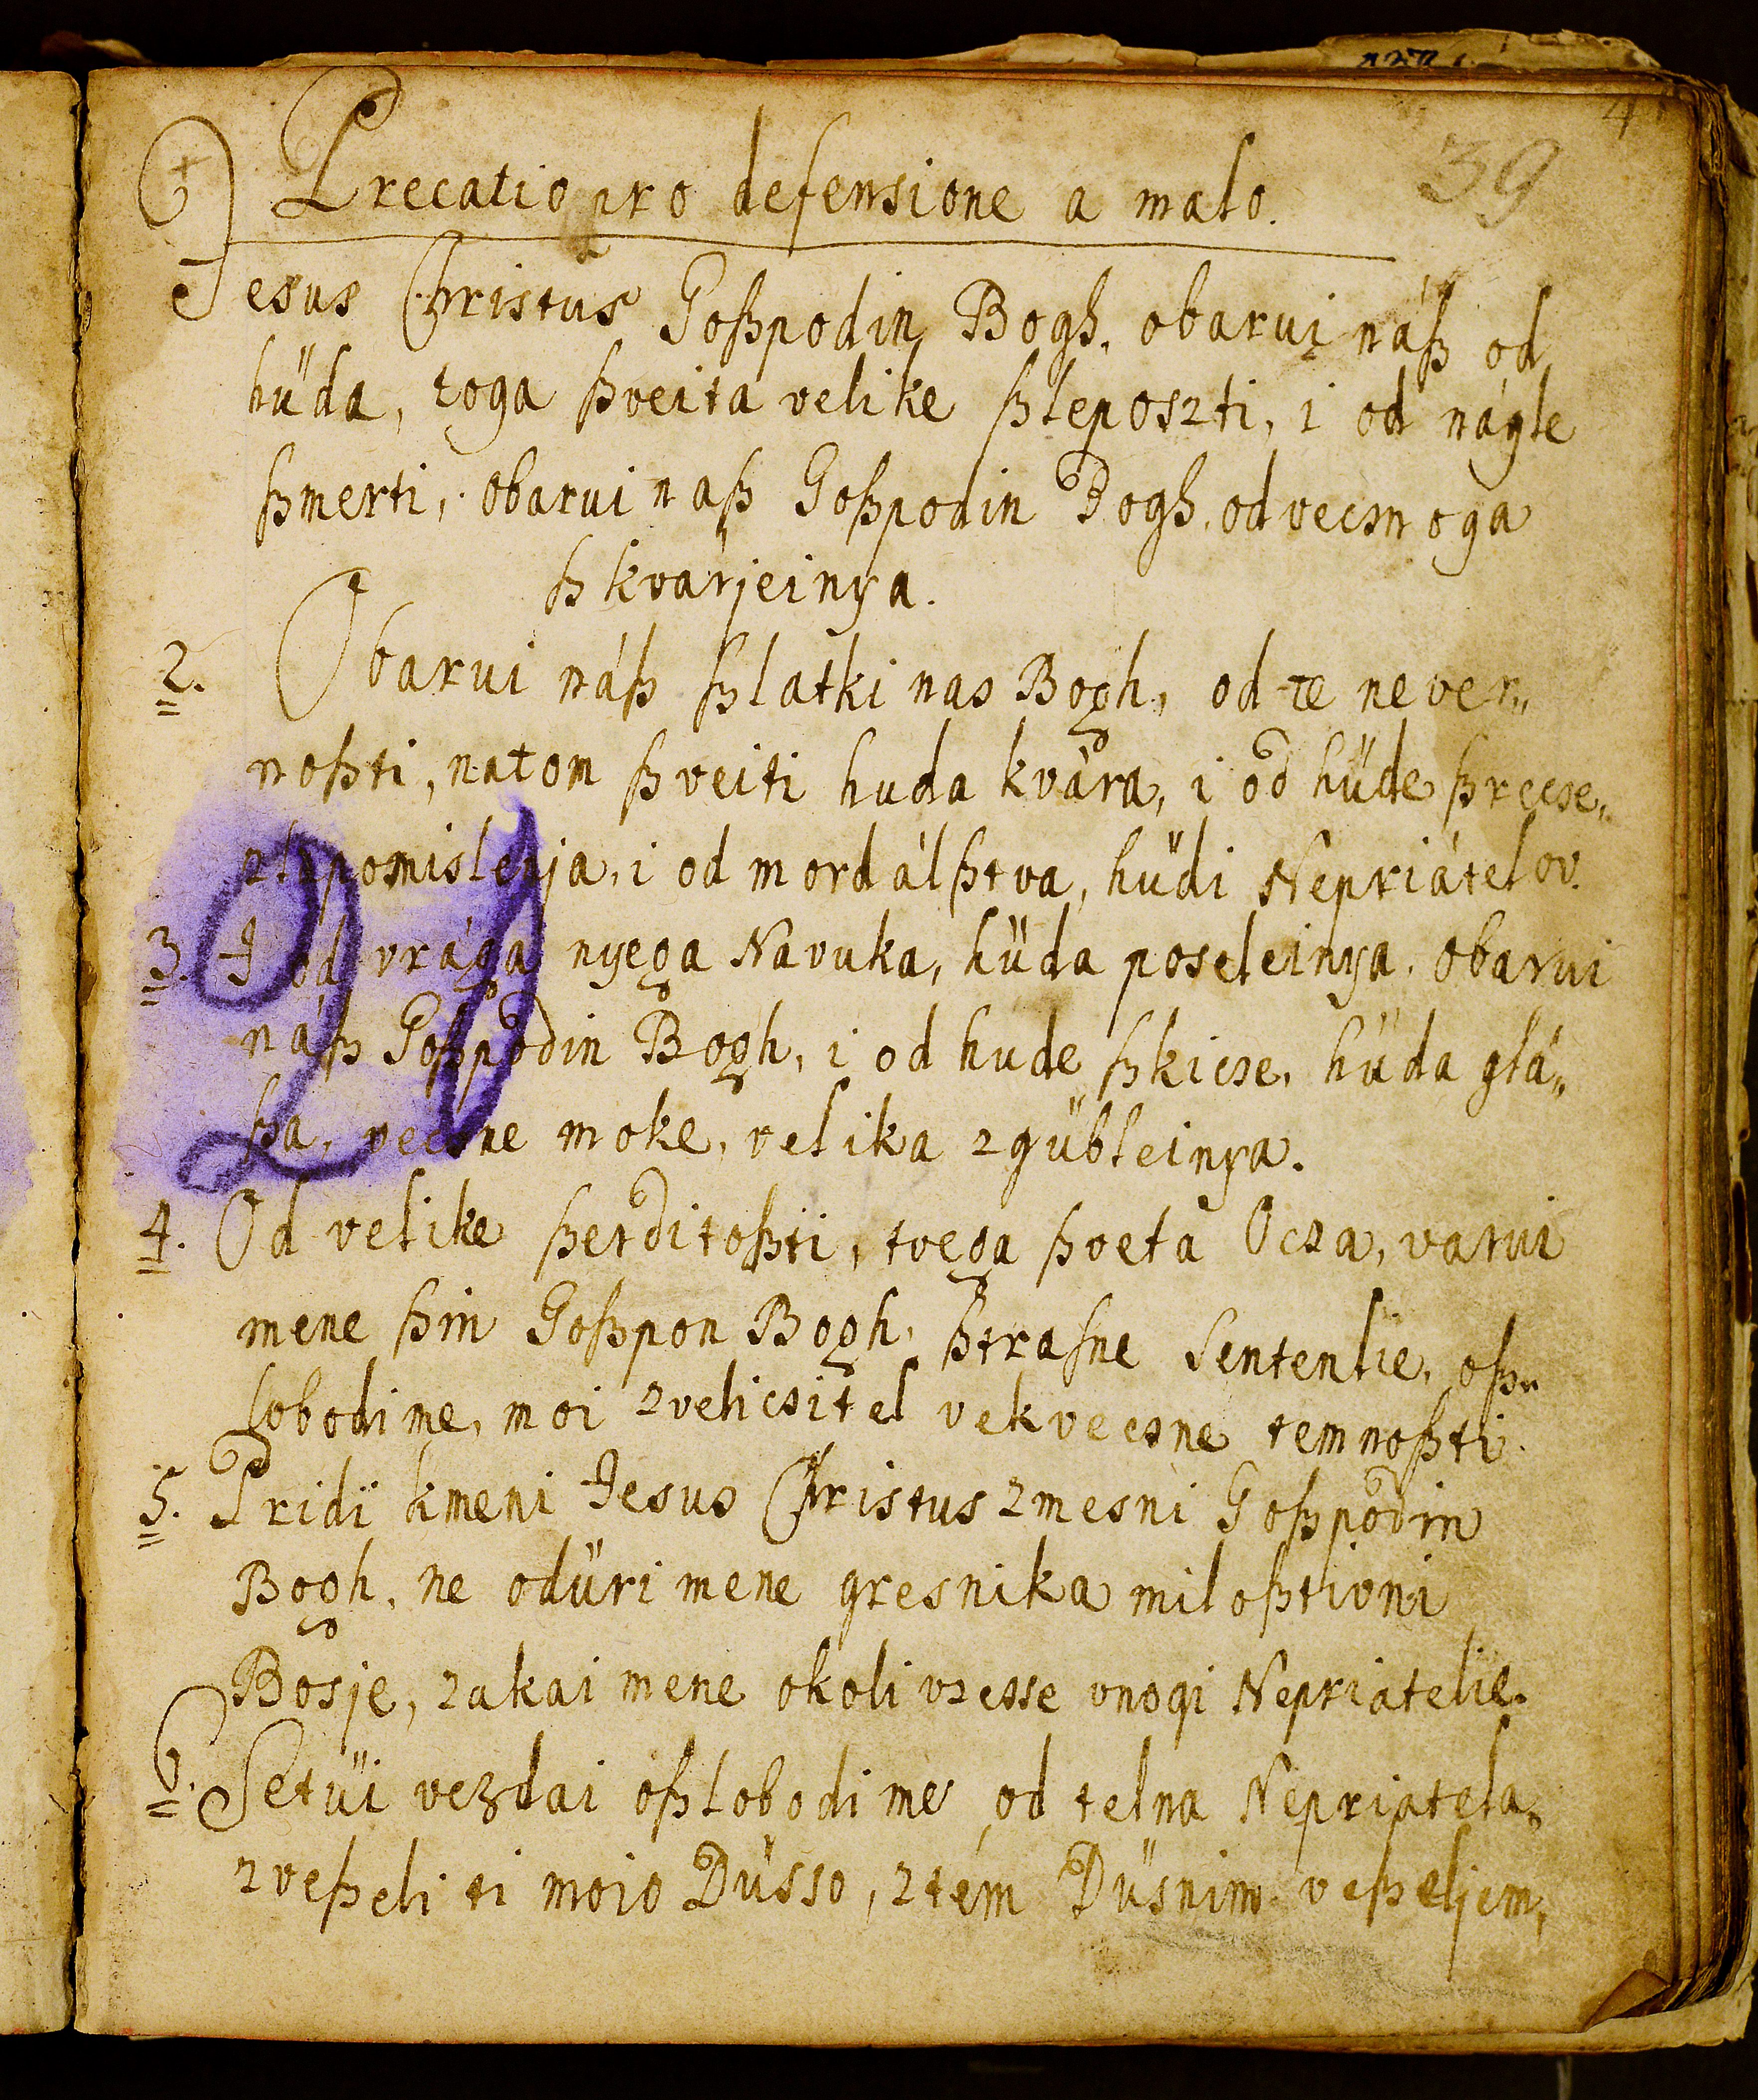 39
Precatio pro defensione a malo.
Jesus Christus Goßpodin Bogh, obarui náß od
hüda, toga ßveita velike ßleposzti, i od nágle
ßmerti, obarui naß Goßpodin Bogh, od vecsnoga
ßkvárjeinya.
2. Obarui náß ßlatki nas Bogh, od te never„
noßti, natom ßveiti huda kvára, i od hüde ßrecse,
zla pomislenja, i od mordálßtva, hüdi Nepriátelov.
3. I od vrága nyega Navuka, hüda poseleinya, obarui
náß Goßpodin Bogh, i od hude ßkicse, hüda glá„
ßa, vecsne moke, velika zgübleinya.
4. Od velike ßerditoßti, tvega ßveta Ocza, varui
mene ßin Goßpon Bogh, ßtrasne Sententie, oß„
lobodi me, moi zvelicsitel vekvecsne temnoßti.
5. Pridi kmeni Jesus Christus zmesni Goßpodin
Bogh, ne odüri mene gresnika miloßtivni
Bosje, zakai mene okoli vzesse vnogi Nepriatelie.
6. Setüi vezdai oßlobodi me od telna Nepriatela,
zveßeli ti moio Düsso, ztém Düsnim veßeljem,